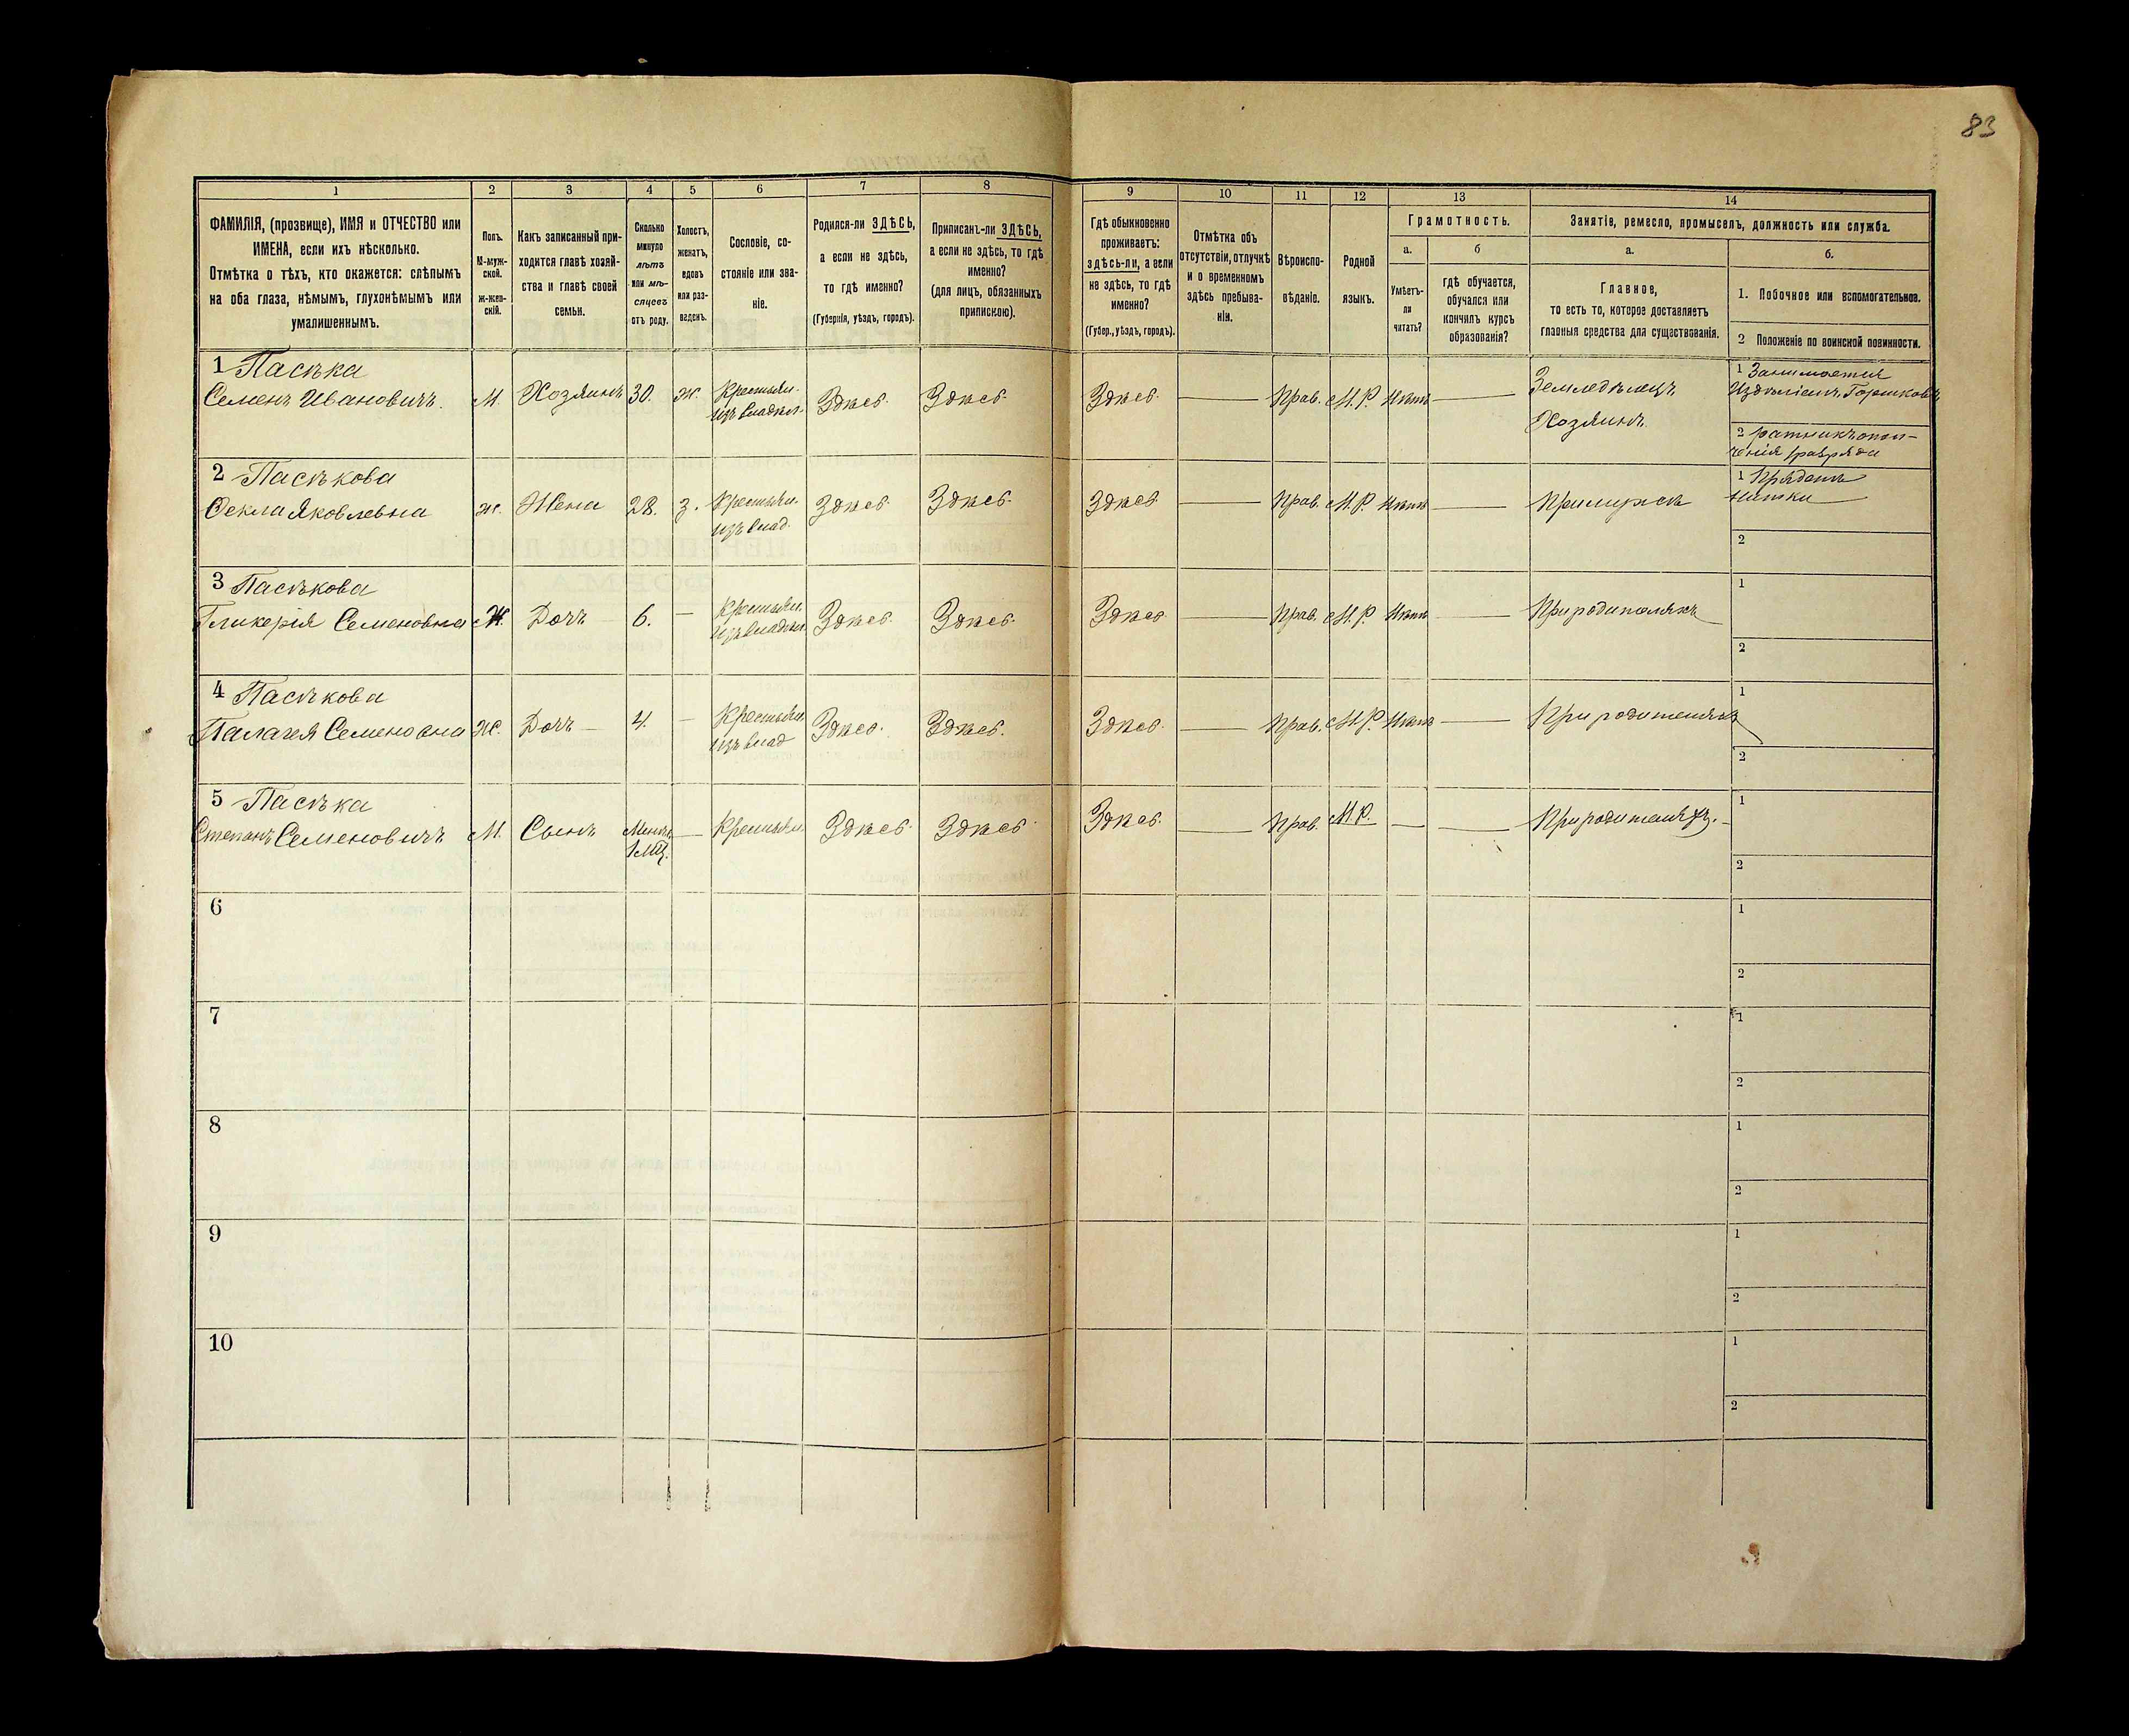 83
1 2 3 4 5 6 7 8 9 10 11 12 13 14
ФАМИЛІЯ, (прозвище), ИМЯ и ОТЧЕСТВО или
ИМЕНА, если ихъ нѣсколько.
Отмѣтка о тѣхъ, кто окажется: слѣпымъ
на оба глаза, нѣмымъ, глухонѣмымъ или
умалишеннымъ.
Полъ.
М-муж-
ской.
ж-жен-
скій.
Какъ записанный при-
ходится главѣ хозяй-
ства и главѣ своей
семьи.
Сколько
минуло
лѣтъ
или мѣ-
сяцевъ
отъ роду.
Холостъ,
женатъ,
вдовъ
или раз-
веденъ.
Сословіе, со-
стояніе или зва-
ніе.
Родился-ли ЗДѢСЬ,
а если не здѣсь,
то гдѣ именно?
(Губернія, уѣздъ, городъ).
Приписанъ-ли ЗДѢСЬ,
а если не здѣсь, то гдѣ
именно?
(для лицъ, обязанныхъ
припискою).
Гдѣ обыкновенно
проживаетъ:
здѣсь-ли, а если
не здѣсь, то гдѣ
именно?
(Губер., уѣздъ, городъ).
Отмѣтка объ
отсутствіи, отлучкѣ
и о временномъ
здѣсь пребыва-
ніи.
Вѣроиспо-
вѣданіе.
Родной
языкъ.
Грамотность.
а.
Умѣетъ-
ли
читать?
б
гдѣ обучается,
обучался или
кончилъ курсъ
образованія?
Занятіе, ремесло, промыселъ, должность или служба.
а.
Главное,
то есть то, которое доставляетъ
главныя средства для существованія.
б.
1. Побочное или вспомогательное.
2 Положеніе по воинской повинности.
1 Пасѣка
Семенъ Ивановичъ. М. Хозяинъ 30. Ж. Крестьян. Здѣсь. Здѣсь. Здѣсь. Прав. М.Р. Нѣтъ Земледѣлецъ
изъ владѣл.
Хозяинъ.
1 Занимается
Издѣліемъ Горшковъ
2 ратникъ опол-
ченія 1 разряда
2 Пасѣкова
Ѳекла Яковлевна ж. Жена 28. З. Крестьян. Здѣсь. Здѣсь. Здѣсь. Прав. М.Р. Нѣтъ При мужѣ
изъ влад.
1 Прядетъ
нитки
2
3 Пасѣкова
Гликерія Семеновна Ж. Дочъ 6. — Крестьян. Здѣсь. Здѣсь. Здѣсь. Прав. М.Р. Нѣтъ При родителяхъ
изъ владѣл.
1
2
4 Пасѣкова
Палагея Семеновна Ж. Дочъ 4. — Крестьян. Здѣсь. Здѣсь. Здѣсь. Прав. М.Р. Нѣтъ При родителяхъ
изъ влад
1
2
5 Пасѣка
Степанъ Семеновичъ М. Сынъ Менѣе — Крестьян. Здѣсь. Здѣсь Здѣсь. Прав. М.Р. — При родителяхъ.
1
2
6
1
2
7
1
2
8
1
2
9
1
2
10
1
2